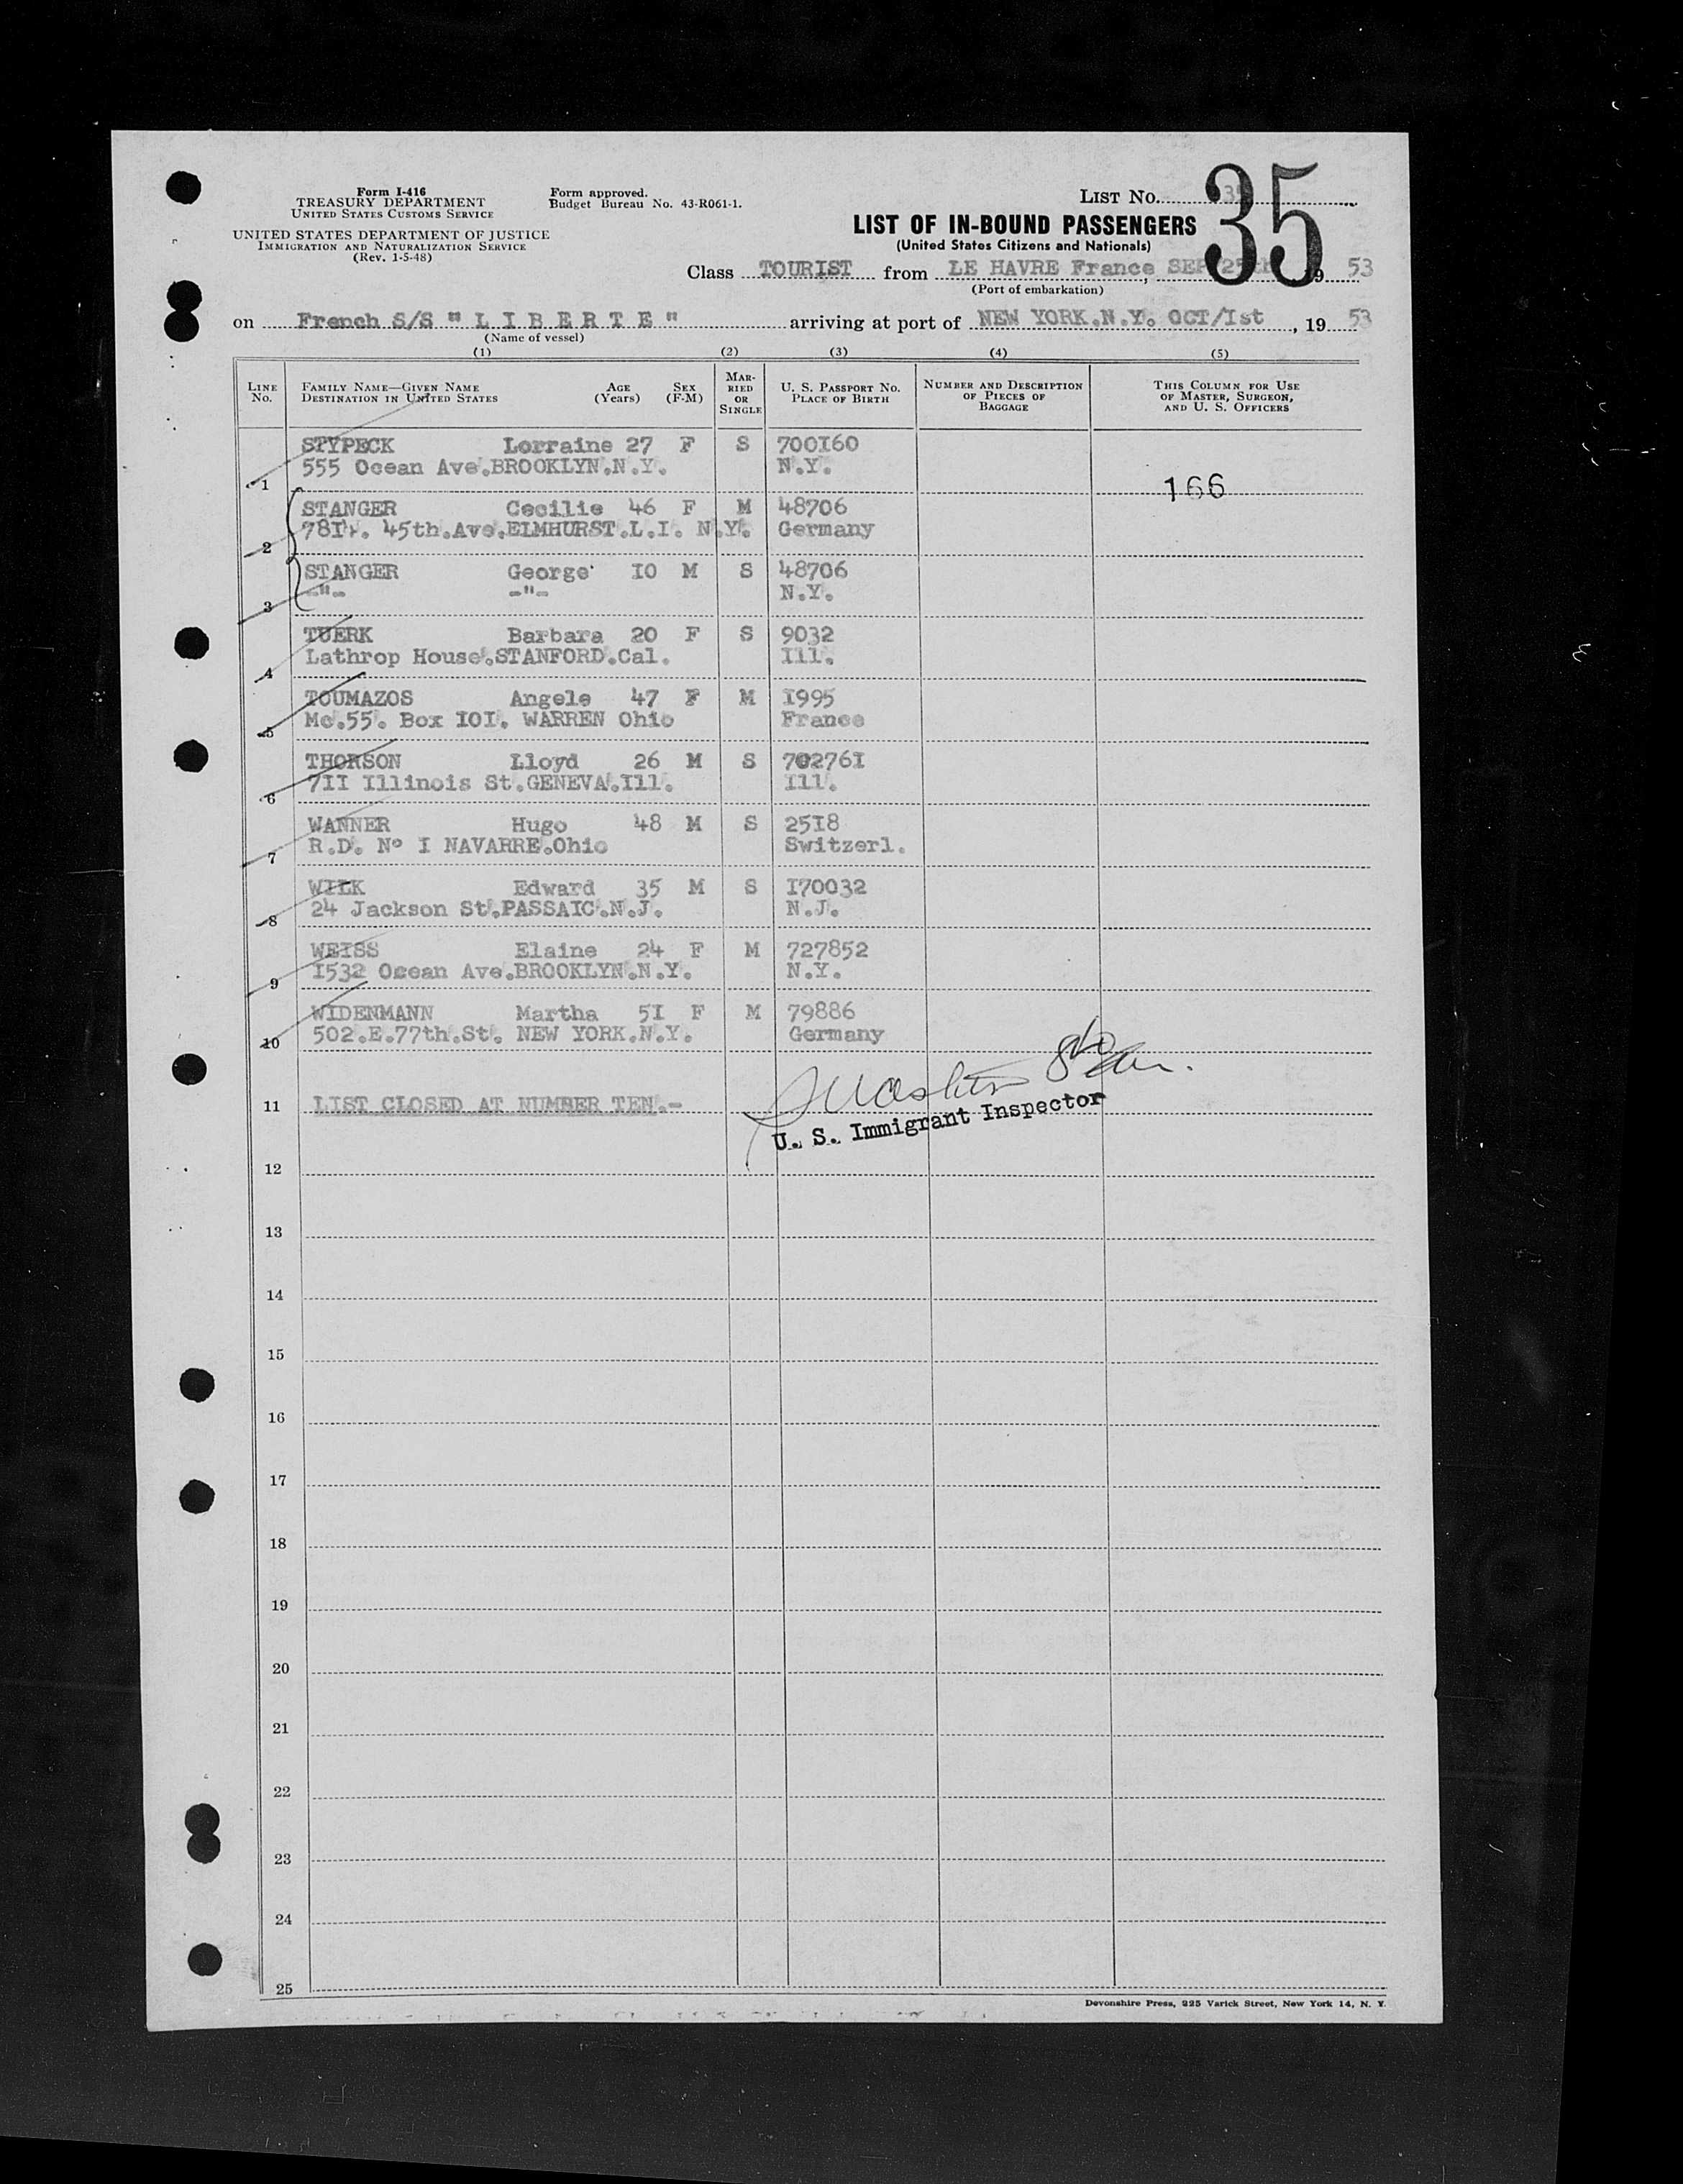 Form I-416
TREASURY DEPARTMENT
UNITED STATES CUSTOMS SERVICE
UNITED STATES DEPARTMENT OF JUSTICE
IMMIGRATION AND NATURALIZATION SERVICE
(Rev. 1-5-48)
Form approved.
Budget Bureau No. 43-R061-1.
LIST No. 35
35
LIST OF IN-BOUND PASSENGERS
(United States Citizens and Nationals)
Class TOURIST from LE HAVRE France, SEP/25th 19 53
(Port of embarkation)
on French S/S " L I B E R T E " arriving at port of NEW YORK.N.Y. OCT/Ist, 19 53
(Name of vessel)
(1) (2) (3) (4) (5)
LINE No. FAMILY NAME—GIVEN NAME DESTINATION IN UNITED STATES AGE (Years) SEX (F-M) MARRIED OR SINGLE U. S. PASSPORT NO. PLACE OF BIRTH NUMBER AND DESCRIPTION OF PIECES OF BAGGAGE THIS COLUMN FOR USE OF MASTER, SURGEON, AND U. S. OFFICERS
STYPECK Lorraine 27 F S 700I60
555 Ocean Ave.BROOKLYN.N.Y. N.Y.
1 166
STANGER Cecilie 46 F M 48706
78I4. 45th.Ave.ELMHURST.L.I. N.Y. Germany
2
STANGER George IO M S 48706
-"- -"- N.Y.
3
TUERK Barbara 20 F S 9032
Lathrop House.STANFORD.Cal. Ill.
4
TOUMAZOS Angele 47 F M I995
Mc.55. Box IOI. WARREN Ohio France
5
THORSON Lloyd 26 M S 70276I
7II Illinois St.GENEVA.Ill. Ill.
6
WANNER Hugo 48 M S 25I8
R.D. Nº I NAVARRE.Ohio Switzerl.
7
WILK Edward 35 M S I70032
24 Jackson St.PASSAIC.N.J. N.J.
8
WEISS Elaine 24 F M 727852
I532 Ocean Ave.BROOKLYN.N.Y. N.Y.
9
WIDENMANN Martha 5I F M 79886
502.E.77th.St. NEW YORK.N.Y. Germany
10
11 LIST CLOSED AT NUMBER TEN.-
U. S. Immigrant Inspector
12
13
14
15
16
17
18
19
20
21
22
23
24
25
Devonshire Press, 225 Varick Street, New York 14, N. Y.